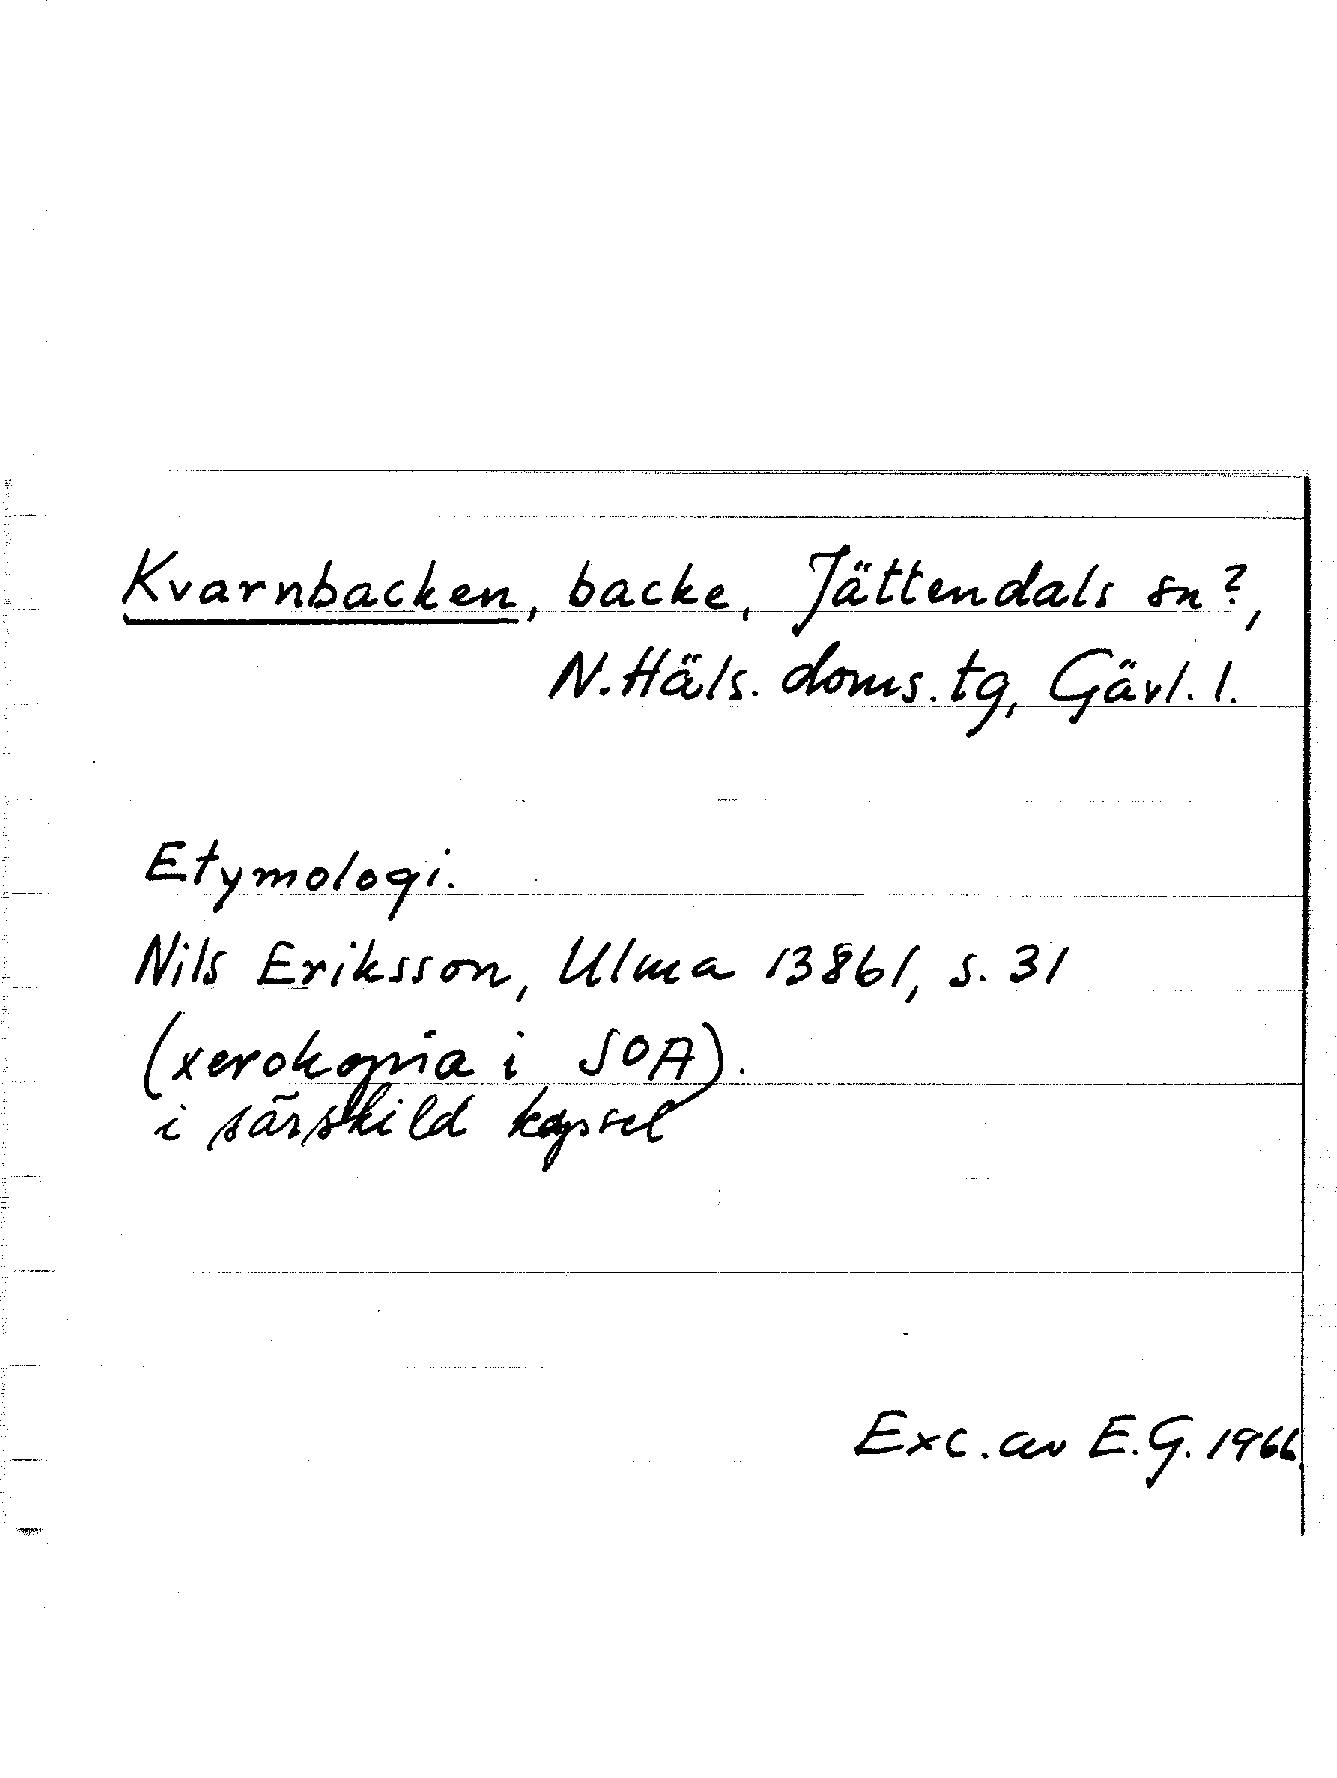 Kvarnbacken, backe, Jättendals sn?,
N. Häls. doms. tg, Gävl. l.
Etymologi.
Nils Eriksson, Ulma 13861, s. 31
(xerokopia i SOA).
i särskild kapsel
Exc. av E.G. 1966.